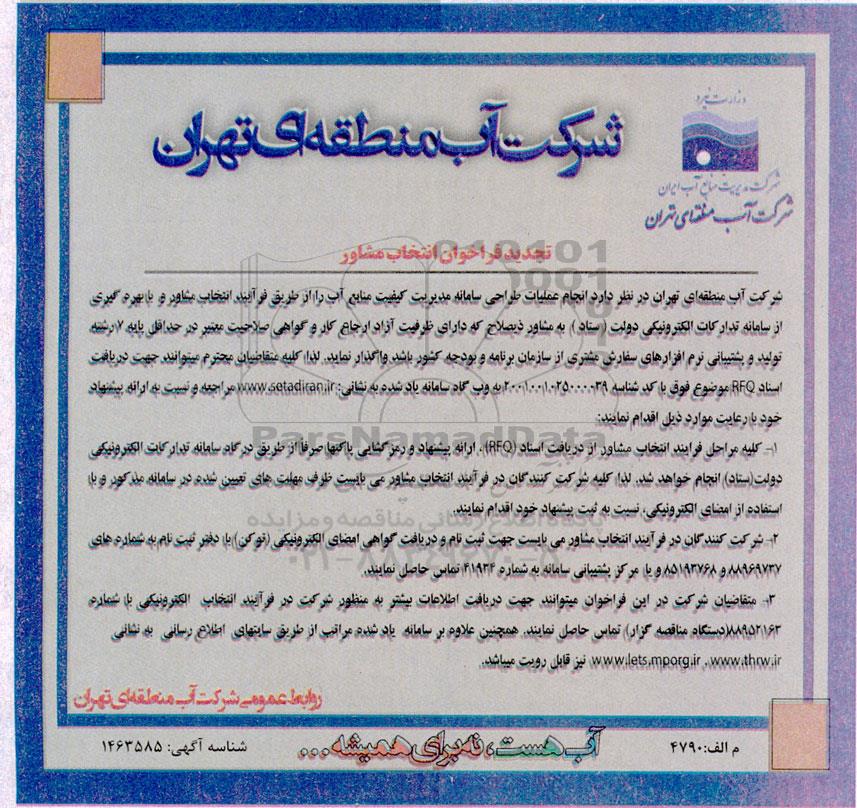 وزارت نیرو
شرکت مدیریت منابع آب ایران
شرکت آب منطقه‌ای تهران
شرکت آب منطقه‌ای تهران
تجدید فراخوان انتخاب مشاور
شرکت آب منطقه‌ای تهران در نظر دارد انجام عملیات طراحی سامانه مدیریت کیفیت منابع آب را از طریق فرآیند انتخاب مشاور و با بهره گیری
از سامانه تدارکات الکترونیکی دولت ( ستاد ) به مشاور ذیصلاح که دارای ظرفیت آزاد ارجاع کار و گواهی صلاحیت معتبر در حداقل پایه ۷ رشته
تولید و پشتیبانی نرم افزارهای سفارش مشتری از سازمان برنامه و بودجه کشور باشد واگذار نماید. لذا کلیه متقاضیان محترم میتوانند جهت دریافت
اسناد RFQ موضوع فوق با کد شناسه ۲۰۰۱۰۰۱۰۲۵۰۰۰۰۳۹ به وب گاه سامانه یاد شده به نشانی: www.setadiran.ir مراجعه و نسبت به ارائه پیشنهاد
خود با رعایت موارد ذیل اقدام نمایند:
۱- کلیه مراحل فرایند انتخاب مشاور از دریافت اسناد (RFQ) ، ارائه پیشنهاد و رمزگشایی پاکتها صرفاً از طریق درگاه سامانه تدارکات الکترونیکی
دولت(ستاد) انجام خواهد شد. لذا کلیه شرکت کنندگان در فرآیند انتخاب مشاور می بایست ظرف مهلت های تعیین شده در سامانه مذکور و با
استفاده از امضای الکترونیکی، نسبت به ثبت پیشنهاد خود اقدام نمایند.
۲- شرکت کنندگان در فرآیند انتخاب مشاور می بایست جهت ثبت نام و دریافت گواهی امضای الکترونیکی (توکن) با دفتر ثبت نام به شماره های
۸۸۹۶۹۷۳۷ و ۸۵۱۹۳۷۶۸ و یا مرکز پشتیبانی سامانه به شماره ۴۱۹۳۴ تماس حاصل نمایند.
۳- متقاضیان شرکت در این فراخوان میتوانند جهت دریافت اطلاعات بیشتر به منظور شرکت در فرآیند انتخاب الکترونیکی با شماره
۸۸۹۵۲۱۶۳(دستگاه مناقصه گزار) تماس حاصل نمایند. همچنین علاوه بر سامانه یاد شده مراتب از طریق سایتهای اطلاع رسانی به نشانی
www.thrw.ir ، www.lets.mporg.ir نیز قابل رویت میباشد.
روابط عمومی شرکت آب منطقه‌ای تهران
م الف: ۴۷۹۰
آب هست، نه برای همیشه ...
شناسه آگهی: ۱۴۶۳۵۸۵
ParsNamadData
پایگاه اطلاع رسانی مناقصه و مزایده